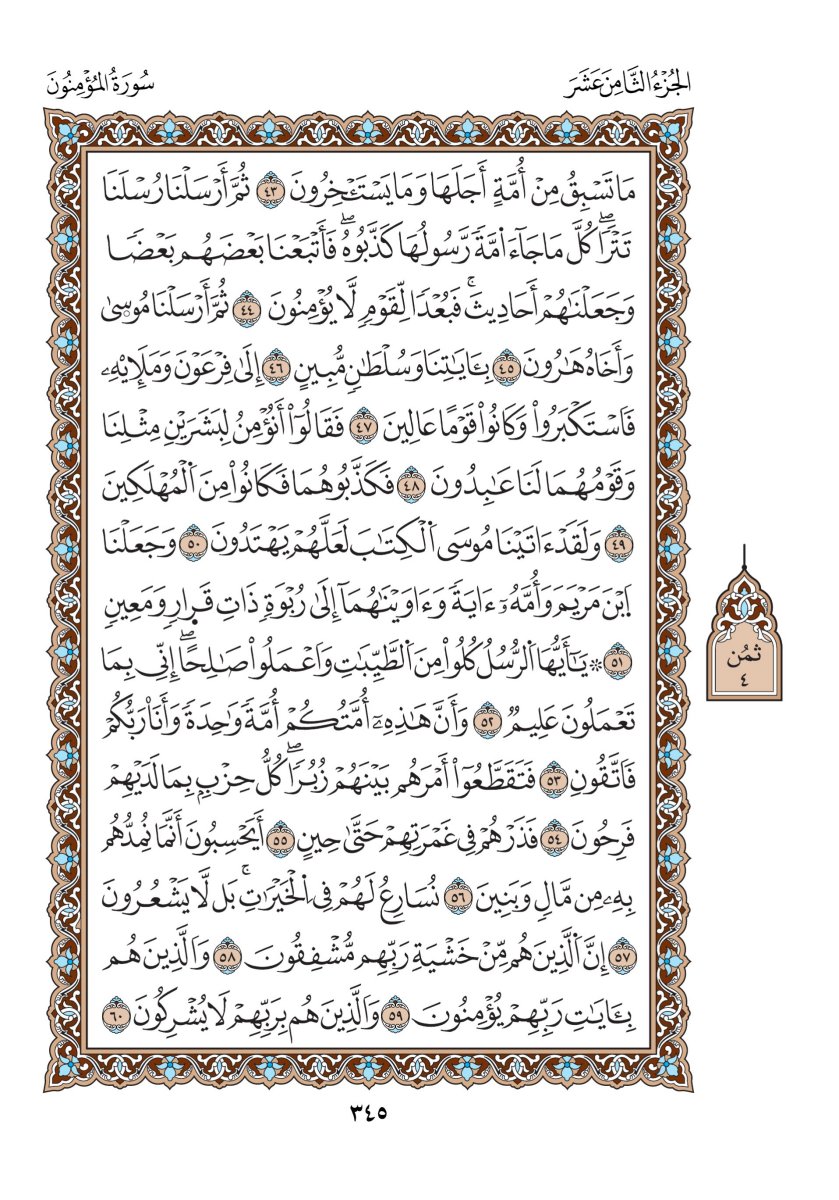 الجُزْءُ الثَّامِنَ عَشَرَ
سُورَةُ المُؤْمِنُونَ
مَا تَسْبِقُ مِنْ أُمَّةٍ أَجَلَهَا وَمَا يَسْتَـْٔخِرُونَ ٤٣ ثُمَّ أَرْسَلْنَا رُسُلَنَا
تَتْرًاۖ كُلَّ مَا جَآءَ ا۟مَّةً رَّسُولُهَا كَذَّبُوهُۖ فَأَتْبَعْنَا بَعْضَهُم بَعْضًا
وَجَعَلْنَٰهُمْ أَحَادِيثَۚ فَبُعْدًا لِّقَوْمٍ لَّا يُؤْمِنُونَ ٤٤ ثُمَّ أَرْسَلْنَا مُوسَىٰ
وَأَخَاهُ هَٰرُونَ ٤٥ بِـَٔايَٰتِنَا وَسُلْطَٰنٍ مُّبِينٍ ٤٦ إِلَىٰ فِرْعَوْنَ وَمَلَإِي۟هِۦ
فَاسْتَكْبَرُوا۟ وَكَانُوا۟ قَوْمًا عَالِينَ ٤٧ فَقَالُوٓا۟ أَنُؤْمِنُ لِبَشَرَيْنِ مِثْلِنَا
وَقَوْمُهُمَا لَنَا عَٰبِدُونَ ٤٨ فَكَذَّبُوهُمَا فَكَانُوا۟ مِنَ ٱلْمُهْلَكِينَ
٤٩ وَلَقَدْ ءَاتَيْنَا مُوسَى ٱلْكِتَٰبَ لَعَلَّهُمْ يَهْتَدُونَ ٥٠ وَجَعَلْنَا
ٱبْنَ مَرْيَمَ وَأُمَّهُۥٓ ءَايَةً وَءَاوَيْنَٰهُمَآ إِلَىٰ رُبْوَةٍ ذَاتِ قَرَارٍ وَمَعِينٍ
٥١ ۞ يَٰٓأَيُّهَا ٱلرُّسُلُ كُلُوا۟ مِنَ ٱلطَّيِّبَٰتِ وَٱعْمَلُوا۟ صَٰلِحًاۖ إِنِّي بِمَا
تَعْمَلُونَ عَلِيمٌ ٥٢ وَأَنَّ هَٰذِهِۦٓ أُمَّتُكُمْ أُمَّةً وَٰحِدَةً وَأَنَا۠ رَبُّكُمْ
فَٱتَّقُونِ ٥٣ فَتَقَطَّعُوٓا۟ أَمْرَهُم بَيْنَهُمْ زُبُرًاۖ كُلُّ حِزْبٍۭ بِمَا لَدَيْهِمْ
فَرِحُونَ ٥٤ فَذَرْهُمْ فِي غَمْرَتِهِمْ حَتَّىٰ حِينٍ ٥٥ أَيَحْسِبُونَ أَنَّمَا نُمِدُّهُم
بِهِۦ مِن مَّالٍ وَبَنِينَ ٥٦ نُسَارِعُ لَهُمْ فِي ٱلْخَيْرَٰتِۚ بَل لَّا يَشْعُرُونَ
٥٧ إِنَّ ٱلَّذِينَ هُم مِّنْ خَشْيَةِ رَبِّهِم مُّشْفِقُونَ ٥٨ وَالَّذِينَ هُم
بِـَٔايَٰتِ رَبِّهِمْ يُؤْمِنُونَ ٥٩ وَالَّذِينَ هُم بِرَبِّهِمْ لَا يُشْرِكُونَ ٦٠
ثُمُن
٤
٣٤٥